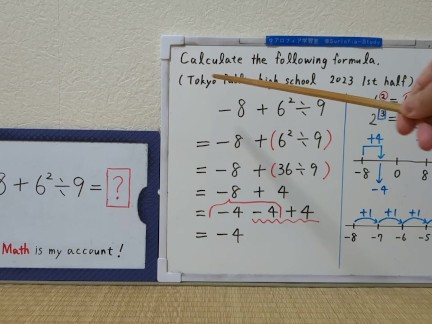 Calculate the following formula.
(Tokyo high school 2023 1st half)
-8 + 6²÷9
= -8 + (6²÷9)
= -8 + (36÷9)
= -8 + 4
= -4 -4 +4
= -4
8 + 6²÷9 = ?
Math is my account!
+4
-8 0 8
-4
+1 +1 +1
-8 -7 -6 -5